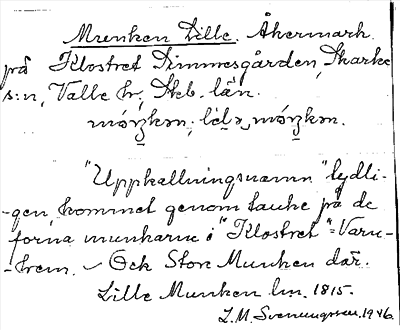 Munken Lille. Åkermark
på Klostret Simmesgården, Skarke
s:n, Valle hd, Skb. län.
"Uppkallningsnamn" tydli-
-gen, kommet genom tanke på de
forna munkarne i "Klostret" = Varn-
-hem. – Ock Stora Munken där.
Lille Munken lm. 1815.
L. M. Svenungsson. 1946.